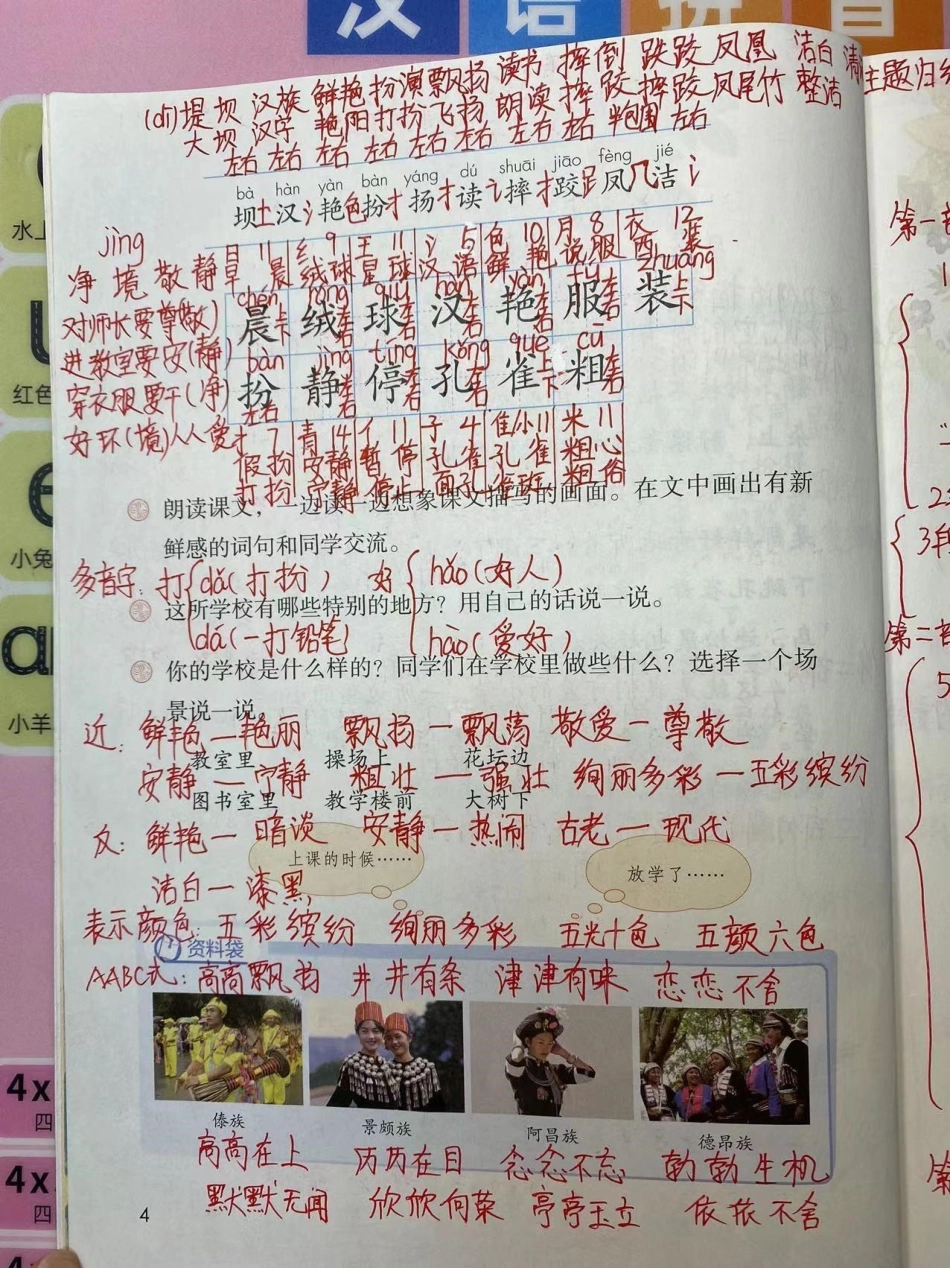 汉 语 拼 音
(dī)堤坝 汉族 鲜艳 扮演 飘扬 读书 摔倒 跌跤 凤凰 洁白
大坝 汉字 艳阳 打扮 飞扬 朗读 摔跤 摔跤 凤尾竹 整洁
左右 左右 左右 左右 左右 左右 左右 半包围 左右
bà hàn yàn bàn yáng dú shuāi jiāo fèng jié
坝土 汉氵 艳色 扮扌 扬扌 读讠 摔扌 跤𧾷 凤几 洁氵
jìng
净 境 敬 静
日 11 纟 9 王 11 氵 5 色 10 月 8 衣 12
早晨 绒球 星球 汉语 鲜艳 说服 西装
对师长要尊(敬)
进教室要安(静)
穿衣服要干(净)
好环(境)人人爱
chén róng qiú hàn yàn fú zhuāng
晨 绒 球 汉 艳 服 装
上下 左右 左右 左右 左右 左右 上下
bàn jìng tíng kǒng què cū
扮 静 停 孔 雀 粗
左右 左右 左右 左右 上下 左右
扌 7 青 14 亻 11 子 4 隹 小 11 米 11
假扮 安静 暂停 孔雀 孔雀 粗心
打扮 宁静 停止 面孔 粗俗
朗读课文，一边读一边想象课文描写的画面。在文中画出有新
鲜感的词句和同学交流。
多音字：打 dǎ(打扮) 好 hǎo(好人)
这所学校有哪些特别的地方？用自己的话说一说。
dá(一打铅笔) hào(爱好)
你的学校是什么样的？同学们在学校里做些什么？选择一个场
景说一说。
近：鲜艳—艳丽 飘扬—飘荡 敬爱—尊敬
教室里 操场上 花坛边
安静—宁静 粗壮—强壮 绚丽多彩—五彩缤纷
图书室里 教学楼前 大树下
反：鲜艳—暗淡 安静—热闹 古老—现代
上课的时候…… 放学了……
洁白—漆黑
表示颜色：五彩缤纷 绚丽多彩 五光十色 五颜六色
资料袋
AABC式：高高飘扬 井井有条 津津有味 恋恋不舍
傣族 景颇族 阿昌族 德昂族
高高在上 历历在目 念念不忘 勃勃生机
默默无闻 欣欣向荣 亭亭玉立 依依不舍
4
水上
红色
小兔
小羊
4x
四
4x
四
4x
主题归纳
第一
3自
第二
5